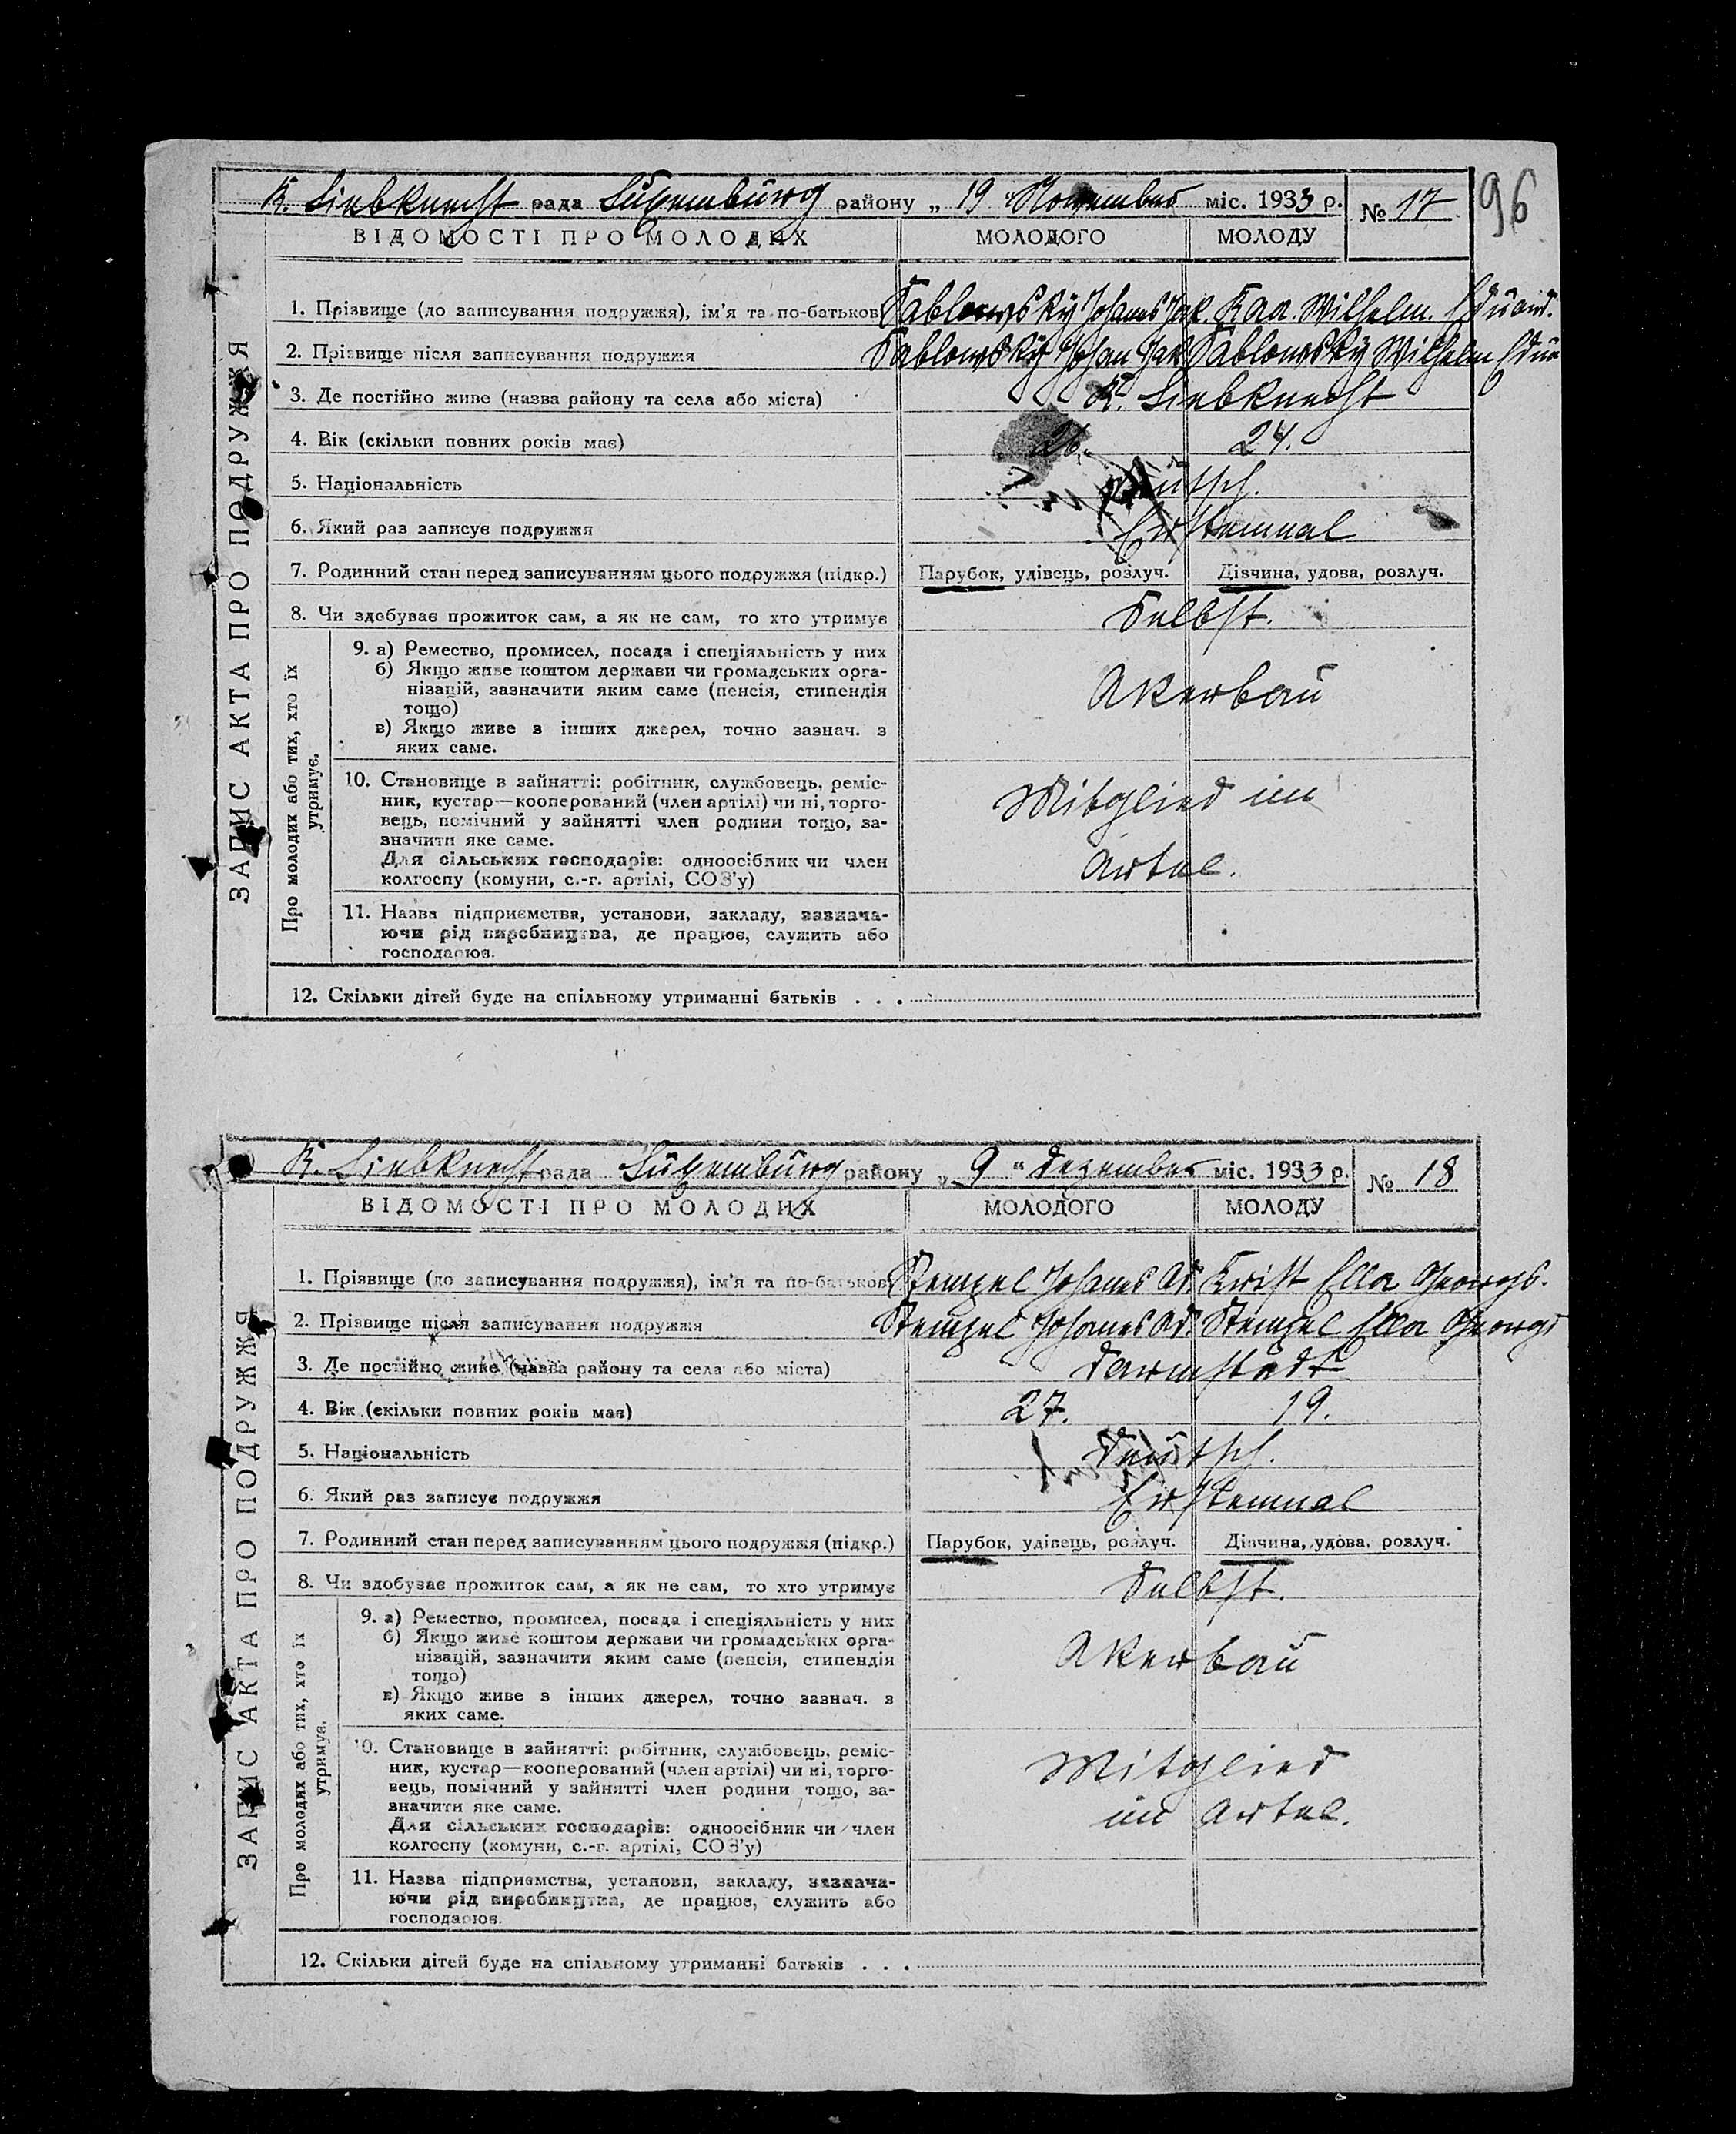 96
K. Liebknecht рада Luxemburg району „ 19 " November міс. 1933 р. № 17
ВІДОМОСТІ ПРО МОЛОДИХ МОЛОДОГО МОЛОДУ
ЗАПИС АКТА ПРО ПОДРУЖЖЯ
1. Прізвище (до записування подружжя), ім'я та по-батьков Sablowsky Johanes Jak. Wilhelm. Eduard.
2. Прізвище після записування подружжя Sablowsky Johan Jak Sablowsky Wilhelm Edua
3. Де постійно живе (назва району та села або міста) K. Liebknecht
4. Вік (скільки повних років має) 26. 24.
5. Національність Deutsch.
6. Який раз записує подружжя Erstemal
7. Родинний стан перед записуванням цього подружжя (підкр.) Парубок, удівець, розлуч. Дівчина, удова, розлуч.
8. Чи здобуває прожиток сам, а як не сам, то хто утримує Selbst.
Про молодих або тих, хто їх
утримує.
9. а) Ремество, промисел, посада і спеціяльність у них
б) Якщо живе коштом держави чи громадських орга-
нізацій, зазначити яким саме (пенсія, стипендія
тощо)
Akerbau
в) Якщо живе з інших джерел, точно зазнач. з
яких саме.
10. Становище в зайнятті: робітник, службовець, реміс-
ник, кустар—кооперований (член артілі) чи ні, торго-
вець, помічний у зайнятті член родини тощо, за-
значити яке саме.
Для сільських господарів: одноосібник чи член
колгоспу (комуни, с.-г. артілі, СОЗ'у)
Mitglied im
Artel.
11. Назва підприємства, установи, закладу, зазнача-
ючи рід виробництва, де працює, служить або
господарює.
12. Скільки дітей буде на спільному утриманні батьків . . .
K. Liebknecht рада Luxemburg району „ 9 " Dezember міс. 1933 р. № 18
ВІДОМОСТІ ПРО МОЛОДИХ МОЛОДОГО МОЛОДУ
ЗАПИС АКТА ПРО ПОДРУЖЖЯ
1. Прізвище (до записування подружжя), ім'я та по-батьков Stempel Johanes Ad. Krist Ella Georgs.
2. Прізвище після записування подружжя Stempel Johanes Ad. Stempel Ella Georgs
3. Де постійно живе (назва району та села або міста) Darmstadt
4. Вік (скільки повних років має) 27. 19.
5. Національність Deutsch.
6. Який раз записує подружжя Erstemal
7. Родинний стан перед записуванням цього подружжя (підкр.) Парубок, удівець, розлуч. Дівчина, удова, розлуч.
8. Чи здобуває прожиток сам, а як не сам, то хто утримує Selbst.
Про молодих або тих, хто їх
утримує.
9. а) Ремество, промисел, посада і спеціяльність у них
б) Якщо живе коштом держави чи громадських орга-
нізацій, зазначити яким саме (пенсія, стипендія
тощо)
Akerbau
в) Якщо живе з інших джерел, точно зазнач. з
яких саме.
10. Становище в зайнятті: робітник, службовець, реміс-
ник, кустар—кооперований (член артілі) чи ні, торго-
вець, помічний у зайнятті член родини тощо, за-
значити яке саме.
Для сільських господарів: одноосібник чи член
колгоспу (комуни, с.-г. артілі, СОЗ'у)
Mitglied
im Artel.
11. Назва підприємства, установи, закладу, зазнача-
ючи рід виробництва, де працює, служить або
господарює.
12. Скільки дітей буде на спільному утриманні батьків . . .